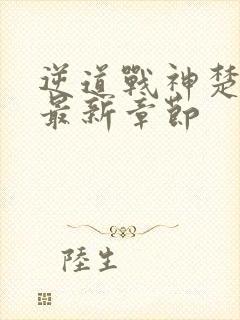 逆道戰神楚
最新章節
陸生